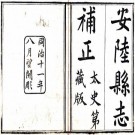 同治十一年
八月曾開彫
安陸縣志
補正
太史第
藏版